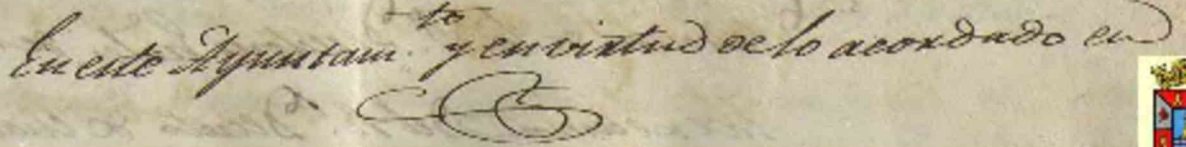 En este Ayuntam.to y en virtud de lo acordado en